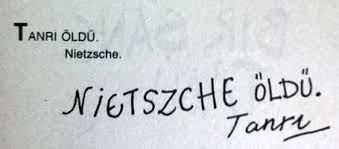 TANRI ÖLDÜ.
Nietzsche.
NİETSZCHE ÖLDÜ.
Tanrı